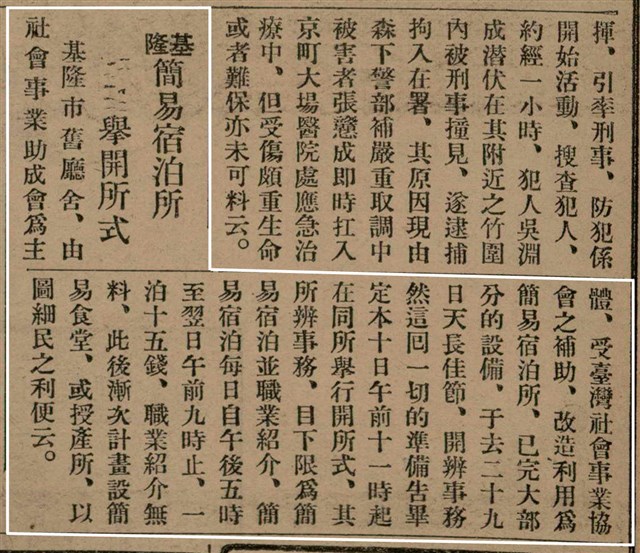 揮、引率刑事、防犯係
開始活動、搜查犯人、
約經一小時、犯人吳淵
成潛伏在其附近之竹圍
內被刑事撞見、遂逮捕
拘入在署、其原因現由
森下警部補嚴重取調中
被害者張戇成即時扛入
京町大塲醫院處應急治
療中、但受傷頗重生命
或者難保亦未可料云。
基隆簡易宿泊所
舉開所式
基隆市舊廳舍、由
社會事業助成會爲主
體、受臺灣社會事業協
會之補助、改造利用爲
簡易宿泊所、已完大部
分的設備、于去二十九
日天長佳節、開辦事務
然這回一切的準備告畢
定本十日午前十一時起
在同所舉行開所式、其
所辦事務、目下限爲簡
易宿泊並職業紹介、簡
易宿泊每日自午後五時
至翌日午前九時止、一
泊十五錢、職業紹介無
料、此後漸次計畫設簡
易食堂、或授產所、以
圖細民之利便云。